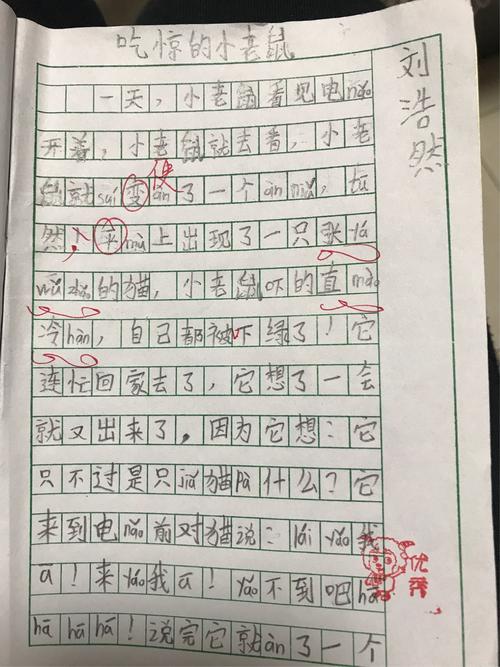 吃惊的小老鼠
刘浩然
一天，小老鼠看见电nǎo
开着，小老鼠就去看，小老
鼠就suí变àn了一个àn niǔ，tū
便
然，伞mù上出现了一只张yá
wǔ zhǎo的猫，小老鼠吓的直mào
冷hàn，自己都被吓绿了！它
连忙回家去了，它想了一会
就又出来了，因为它想：它
只不过是只jiǎ猫pà什么？它
来到电nǎo前对猫说：lái yǎo我
ā！来yǎo我ā！yǎo不到吧hā
优秀
hā hā hā！说完它就àn了一个